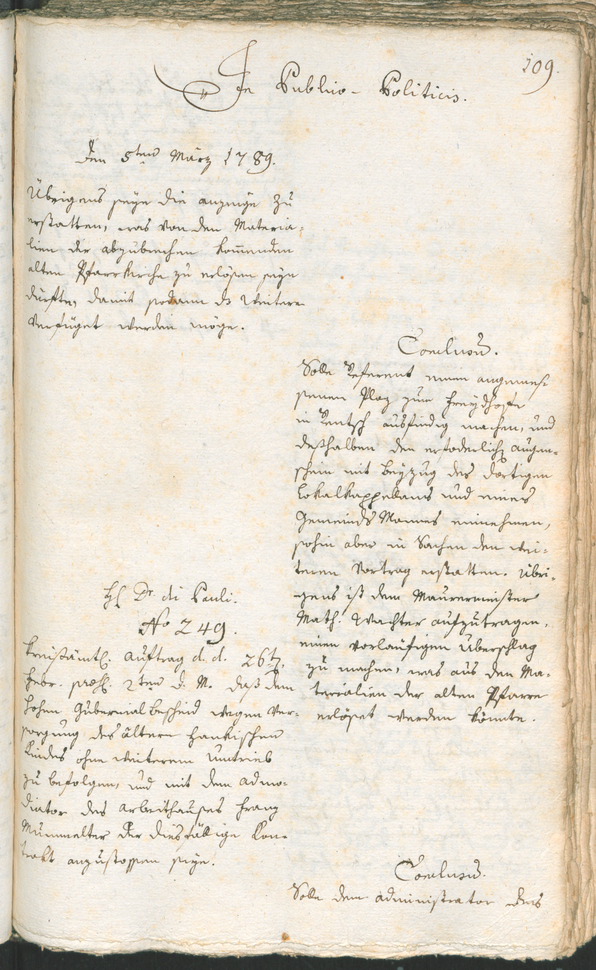 109.
In Publico-Politicis.
Den 5ten März 1789.
Übrigens seye die anzeige zu
erstatten, was von den Materia-
lien der abzubrechen kommenden
alten Pfarrkirche zu erlösen seyn
dürfte, damit sodann ds weitere
verfüget werden möge.
Conclusum.
Solle Referent einen angemes-
senen Plaz zum Freydhofe
in Rentsch ausfindig machen, und
deßhalben den erfoderlich augen-
schein mit Beyzug des dortigen
Lokalkappellans und eines
Gemeinds Mannes einnehmen,
sohin aber in Sachen den wei-
teren Vortrag erstatten. Übri-
gens ist dem Maurermeister
Math. Wachter aufzutragen,
einen vorläufigen Überschlag
zu machen, was aus den Ma-
terialien der alten Pfarre
erlöset werden könnte.
H Dr. di Pauli.
No 249.
Kreisämtl. Auftrag d. d. 26t,
Febr. praes. 2ten d. M. daß dem
hohen Gubernial Bescheid wegen Ver-
sorgung des ältern Hankischen
Kindes ohne weiterem Umtrieb
zu befolgen, und mit dem admo-
diator des Arbeithauses Franz
der diesfällige Kon-
trakt anzustossen seye.
Conclusum.
Solle dem administrator des